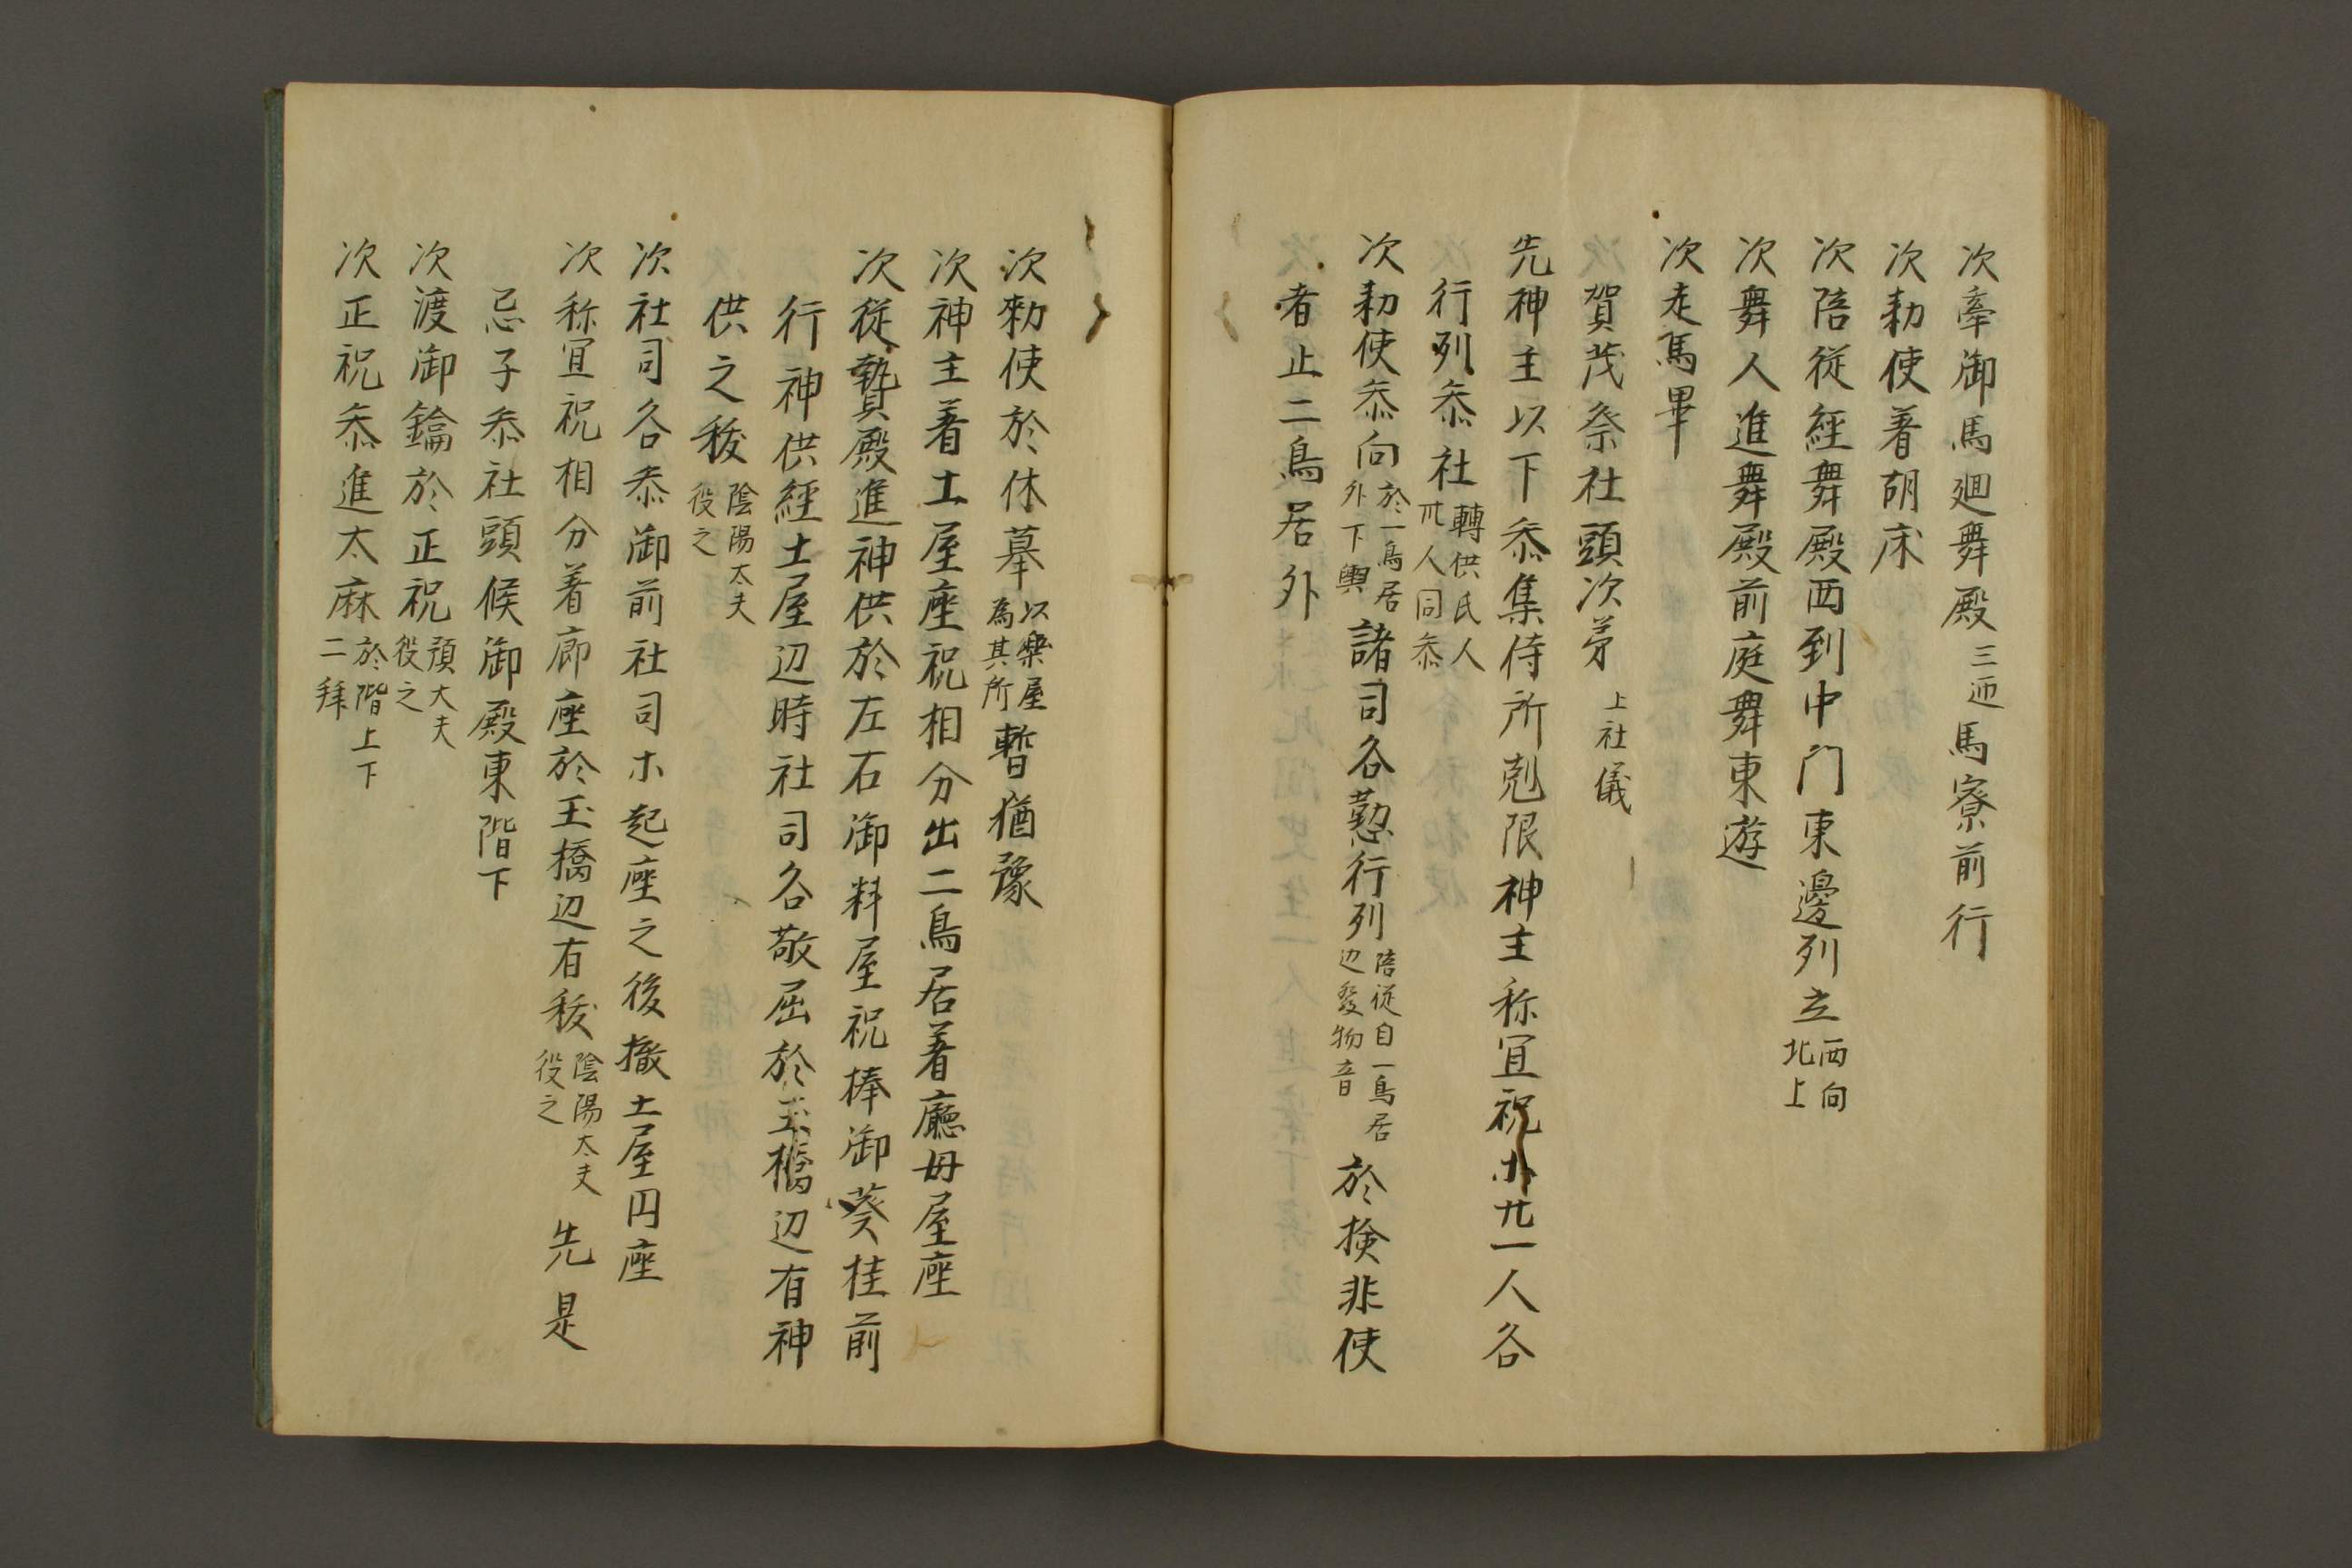 次牽御馬廻舞殿三迊馬寮前行
次勅使著胡床
次陪従經舞殿西到中门東邊列立西向北上
次舞人進舞殿前庭舞東遊
次走馬畢
次賀茂祭社頭次第上社儀
先神主以下叅集侍所剋限神主称冝祝廿一人各
行列叅社轉供氏人卅人同叅
次勅使叅向於一鳥居外下輿諸司各懃行列陪従自一鳥居辺發物音於撿非使
者止二鳥居外
次勑使於休幕以樂屋為其所暫猶豫
次神主着土屋座祝相分出二鳥居著廳母屋座
次従贄殿進神供於左右御料屋祝棒御葵桂前
行神供經土屋辺時社司各敬屈於玉橋辺有神
供之秡陰陽大夫役之
次社司各叅御前社司木起座之後撤土屋円座
次称冝祝相分著廊座於玉橋辺有秡陰陽大夫役之先是
忌子叅社頭候御殿東階下
次渡御鑰於正祝預大夫役之
次正祝叅進太麻於階上下二拜